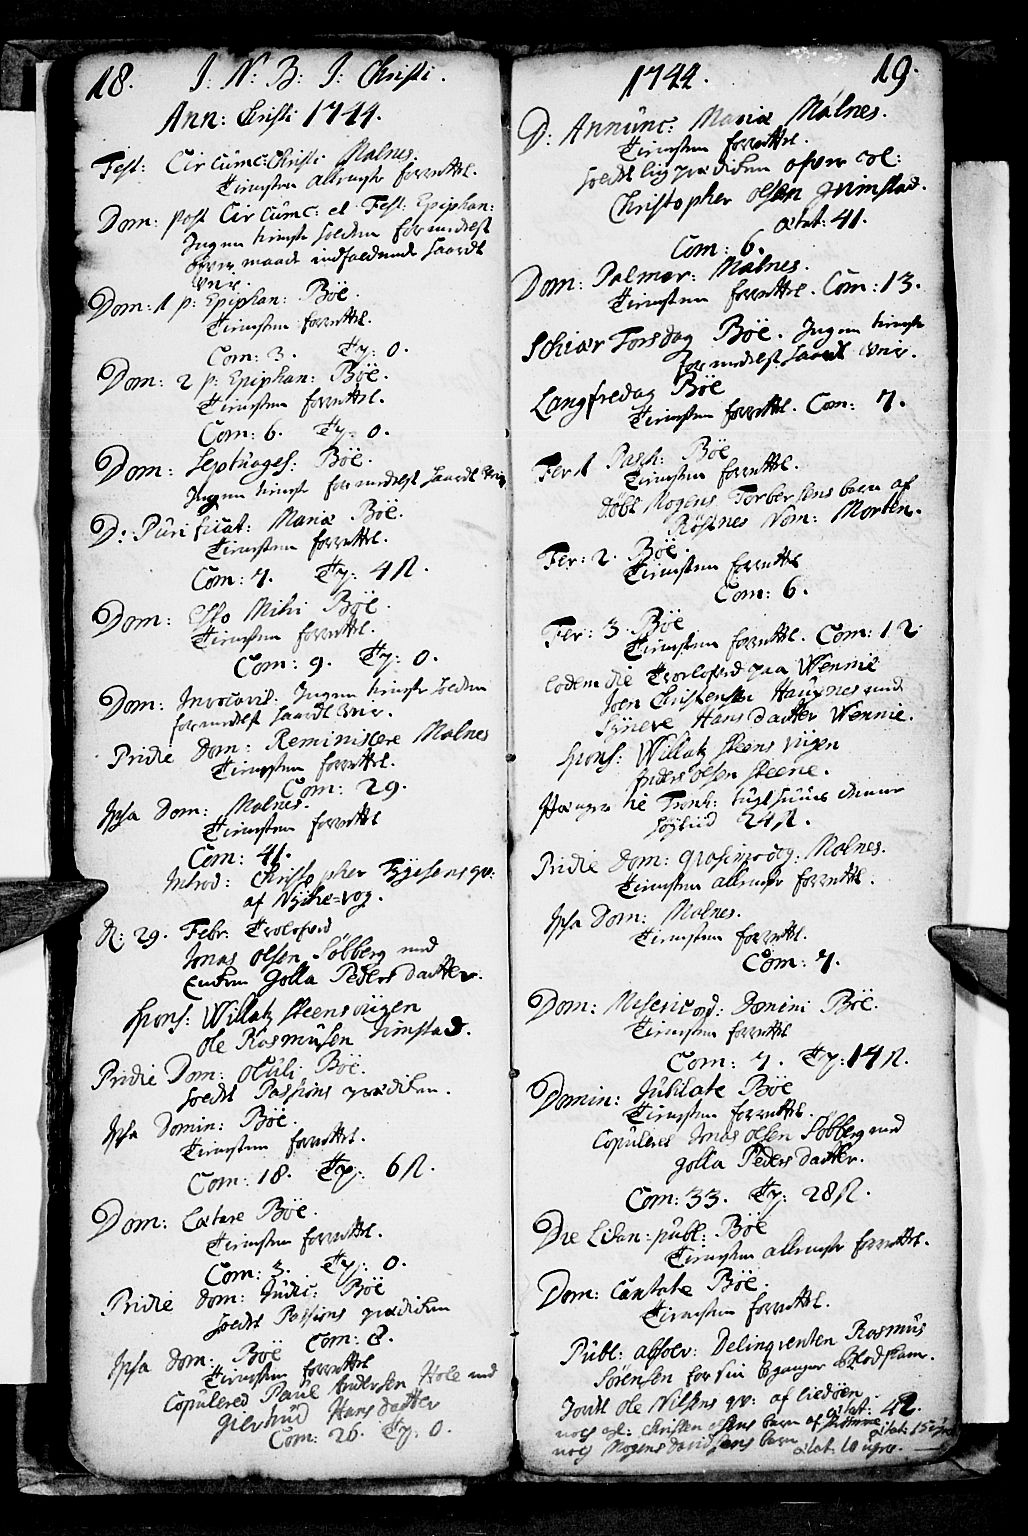 18. J: N: B: J: Christi.
Ann: Christi 1744.
Fest: Circumc: Christi Malnes.
Tienesten alleeneste forrettet.
Dom: post Circumc: et Fest: Epiphan:
Ingen tieneste holden formedelst
over maade indfaldende haardt
veir.
Dom: 1 p: Epiphan: Böe.
Tienesten forrettet.
Com: 3. Ty: 0.
Dom: 2 p: Epiphan: Böe.
Tienesten forrettet.
Com: 6. Ty: 0.
Dom: Septuages: Böe.
Ingen tieneste formedelst haardt Veir
D: Purificat: Mariæ Böe.
Tienesten forrettet.
Com: 7. Ty: 4
Dom: Esto Mihi Böe.
Tienesten forrettet.
Com: 9. Ty: 0.
Dom: Invocavit: Ingen tieneste holden
formedelst haardt veir.
Pridie Dom: Reminiscere Malnes
Tienesten forrettet.
Com: 29.
Ipsa Dom: Malnes.
Tienesten forrettet
Com: 41.
Introd: Christopher qv:
af Nykevog.
D: 29. Febr: Trolofved
Jonas Olsen Söbberg med
Golla Peders datter.
Spons: Willatz Steensvigen
Ole Rasmusen Uimstad.
Pridie Dom: Oculi Böe.
holdt Passions prædiken.
Ipsa Domin: Böe.
Tienesten forrettet.
Com: 18. Ty: 6
Dom: Lætare Böe.
Tienesten forrettet.
Com: 3. Ty: 0.
Pridie Dom: Judic: Böe
holdt Passions prædiken
Com: 8.
Ipsa Dom: Böe
Tienesten forrettet
Copulered Paul Andersen Hole med
Giertrud Hans datter
Com: 26. Ty: 0.
1744. 19.
D: Annunc: Mariæ Malnes.
Tienesten forrettet.
holdt liigprædiken ofver
Christopher Olsen Grimstad.
ætat: 41.
Com: 6.
Dom: Palmar: Malnes.
Tienesten forrettet. Com: 13.
Schiær Torsdag Böe. Ingen tieneste
formedelst haardt veir.
Langfredag Böe
Tienesten forrettet. Com: 7.
Fer: 1 Pasch: Böe
Tienesten forrettet.
döbt Mogens Torbersens barn af
Röstnes Nom: Morten.
Fer: 2. Böe.
Tienesten forrettet
Com: 6.
Fer: 3. Böe
Tienesten forrettet. Com: 12
Eodem die Trolofved paa Wennie
Joen Christensen Haugnes med
Syneve Hans datter Wennie.
Spons: Willatz Steensvigen
Anders Olsen Steene.
Trond: tugthuus
24
Pridie Dom: Qvasimodog: Malnes.
Tienesten alleneste forrettet.
Ipsa Dom: Malnes.
Tienesten forrettet.
Com: 7.
Dom: Misericord: Domini Böe.
Tienesten forrettet
Com: 7. Ty: 14
Domin: Jubilate Böe
Tienesten forrettet.
Copuleret Jonas Olsen Söbberg med
Golla Peders datter.
Com: 33. Ty: 28
Die Litan: publ: Böe
Tienesten alleneste forrettet.
Dom: Cantate Böe.
Tienesten forrettet.
Publ: absolv: Delinqventen Rasmus
Sörensen for sin begangne blodskam.
Jordet Ole Nilsens qv: af Lidöen
ætat: 42.
nok Christen Olsens barn af ætat: 15 uger
nok Mogens Davidsens barn ætat: 10 uger.